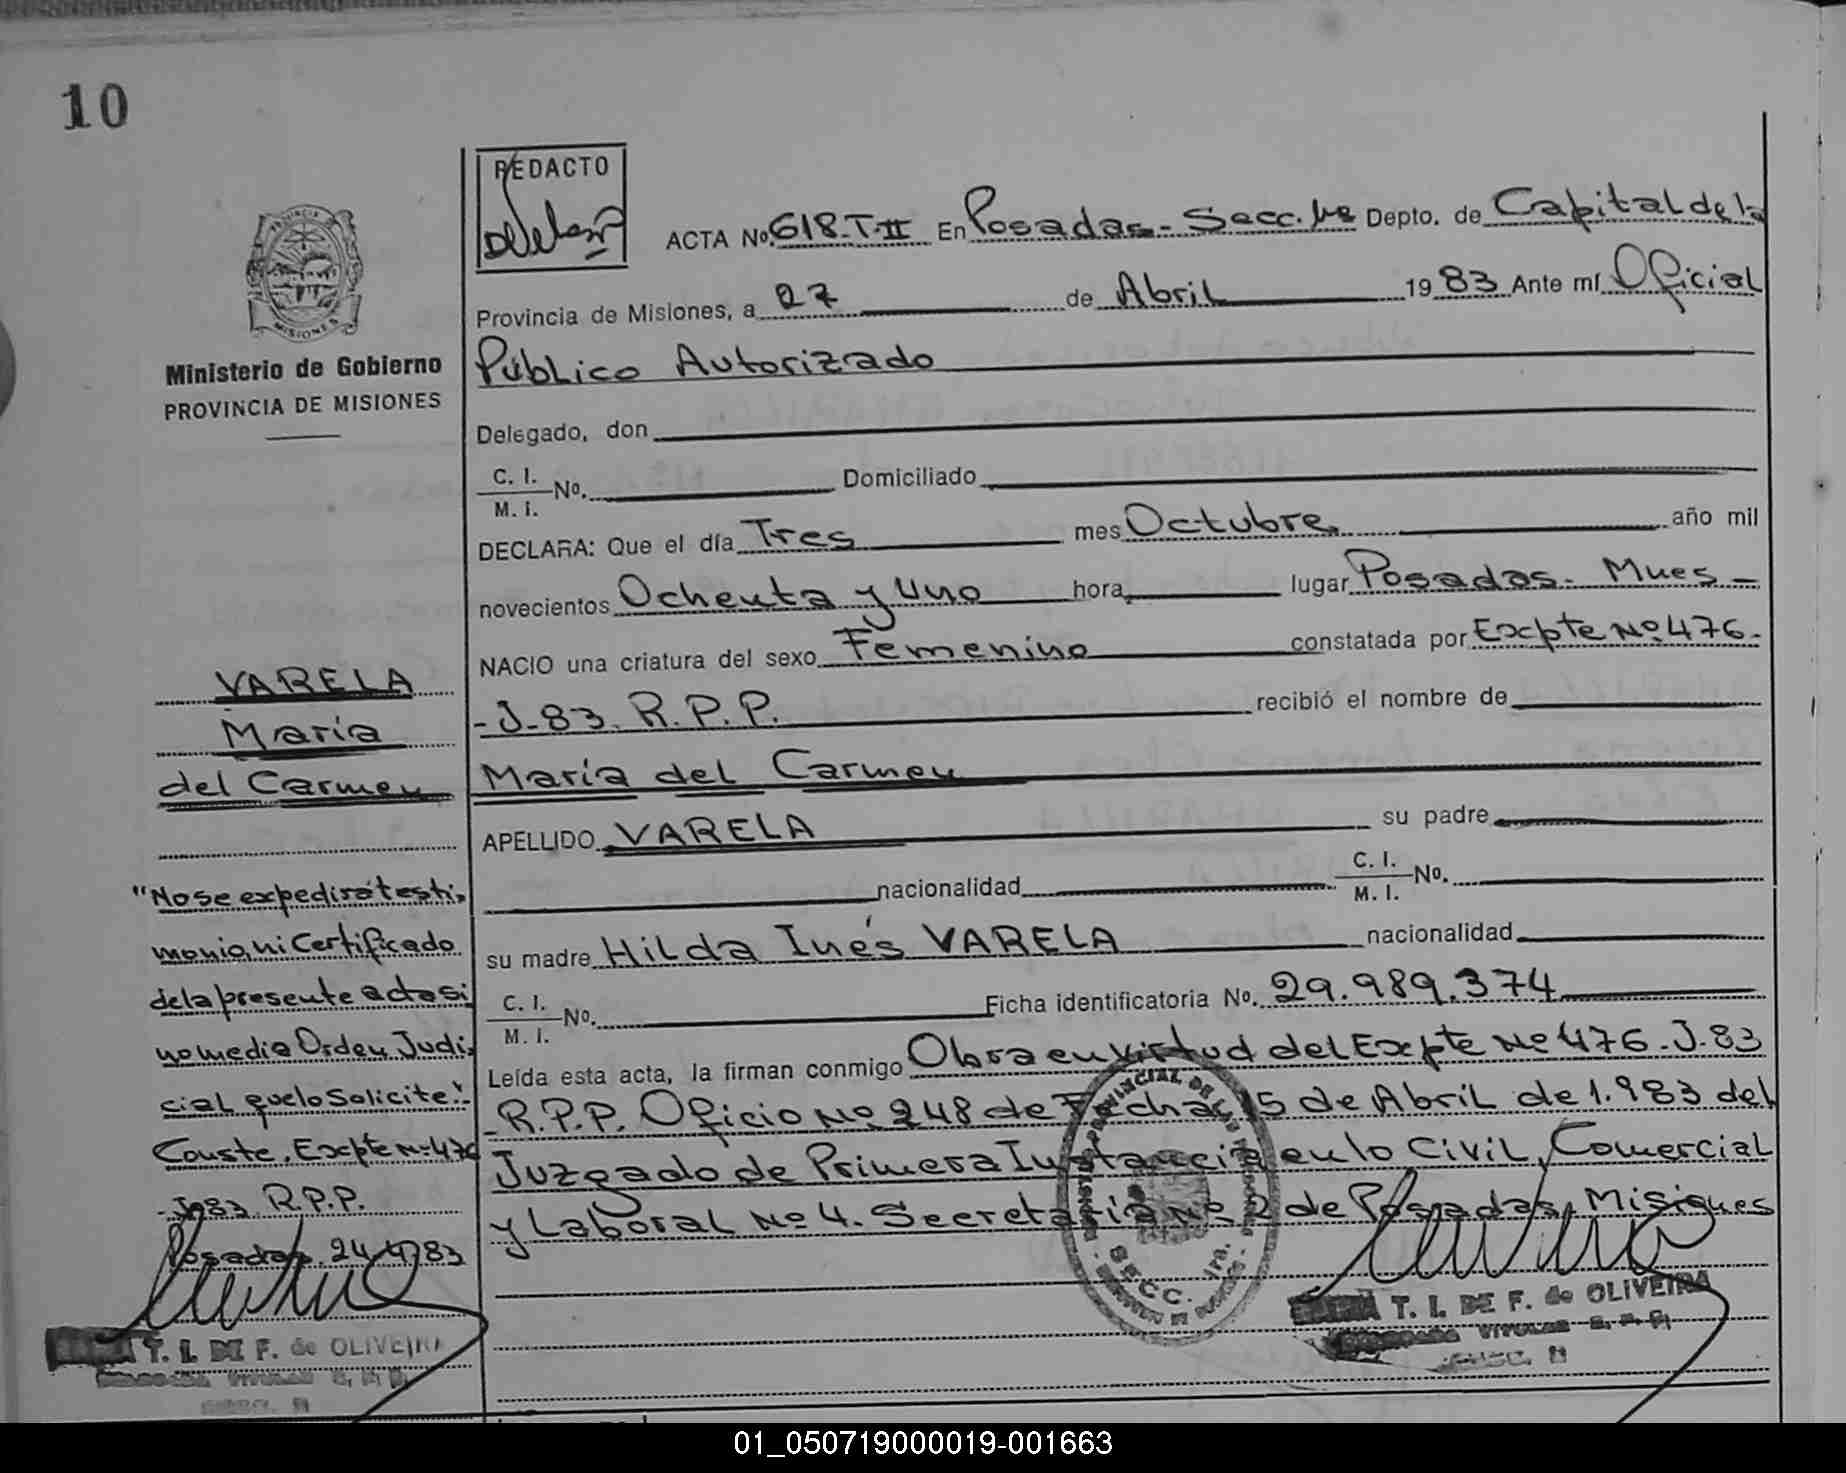 10
REDACTO
ACTA No. 618-T-II En Posadas - Secc. 1ra Depto. de Capital de la
Provincia de Misiones, a 27 de Abril 1983 Ante mí Oficial
Público Autorizado
Delegado, don
C. I. M. I. No. Domiciliado
DECLARA: Que el día Tres mes Octubre año mil
novecientos Ochenta y Uno hora lugar Posadas - Mnes -
NACIO una criatura del sexo Femenino constatada por Expte No. 476-
-J-83. R.P.P. recibió el nombre de
María del Carmen
APELLIDO VARELA su padre
nacionalidad C. I. M. I. No.
su madre Hilda Inés VARELA nacionalidad
C. I. M. I. No. Ficha identificatoria No. 29.989.374
Leída esta acta, la firman conmigo Obra en virtud del Expte No 476-J-83
-R.P.P. Oficio No. 248 de Fecha 15 de Abril de 1.983 del
Juzgado de Primera Instancia en lo Civil, Comercial
y Laboral No 4. Secretaria No 2 de Posadas, Misiones
SECC. 1ra.
T. I. DE F. de OLIVEIRA
PROVINCIA DE
MISIONES
Ministerio de Gobierno
PROVINCIA DE MISIONES
VARELA
María
del Carmen
"No se expedirá testi-
monio, ni Certificado
de la presente acta si
no media Orden Judi-
cial que lo Solicite".-
Conste. Expte No 476
-J-83 R.P.P.
Posadas, 24/4/83
T. I. DE F. de OLIVEIRA
01_050719000019-001663